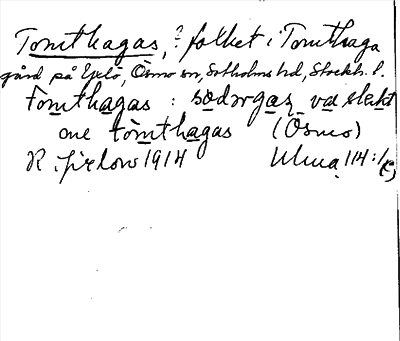 Tomthagas, ? folket i Tomthaga
gård på Yxlö, Ösmo sn, Sotholms hd, Stockh. l.
tomthagas : sodərgas va släkt
me tomthagas (Ösmo)
R. 1914 Ulma 114:1